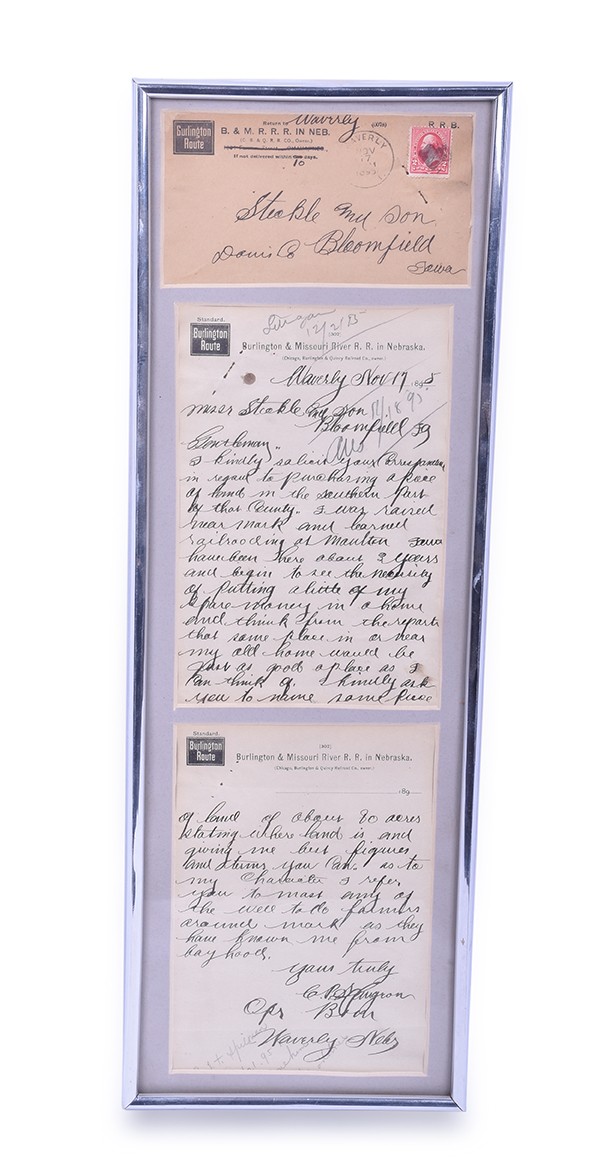 Burlington
Route
Return to
Waverly
B. & M. R. R. R. IN NEB.
(C. B. & Q. R. R. CO., Owner.)
If not delivered within ten days.
10
WAVERLY
NOV
17
R. R. B.
Steckle and Son
Davis Co Bloomfield
Iowa
Standard.
Burlington
Route
12/2/95
Burlington & Missouri River R. R. in Nebraska.
(Chicago, Burlington & Quincy Railroad Co., owner.)
Waverly Nov 17 1895
Messr Steckle and Son
11/18 95
Bloomfield Ia
Ans
Gentleman,,
I kindly solicit your Correspondence
in regard to purchasing a piece
of land in the Southern Part
of that County. I was raised
near Mark and learned
railroading at Moulton Iowa
have been there about 2 years
and begin to see the necessity
of putting a little of my
Spare money in a home
and think from the reports
that some place in or near
my old home would be
just as good a place as I
can think of. I kindly ask
you to name some piece
Standard.
Burlington
Route
Burlington & Missouri River R. R. in Nebraska.
(Chicago, Burlington & Quincy Railroad Co., owner.)
189
of land of about 80 acres
stating where land is and
giving me best figures
and terms you can. as to
my Character I refer
you to most any of
the well to do farmers
around Mark as they
have known me from
boyhood.
yours truly
Opr B&M
Waverly Nebr
95